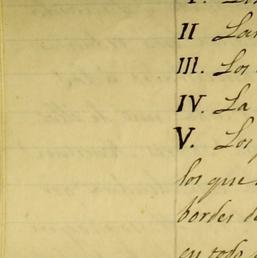 II La
III. Los
IV. La
V. Los
los que
bordes d
en todo